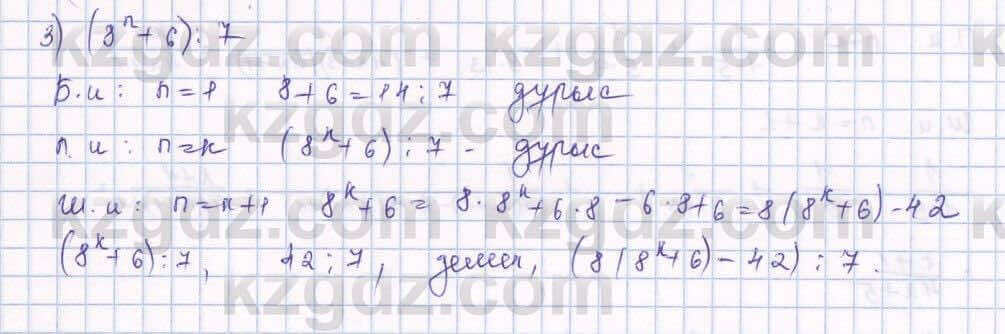 3) (8ⁿ + 6) : 7
Б.и : n = 1 8 + 6 = 14 : 7 дұрыс
П.и : n = k (8ᵏ + 6) : 7 - дұрыс
Ш.и : n = k + 1 8ᵏ + 6 = 8 · 8ᵏ + 6 · 8 - 6 · 8 + 6 = 8 (8ᵏ + 6) - 42
(8ᵏ + 6) : 7, 42 : 7, демек, (8 (8ᵏ + 6) - 42) : 7.
kzgdz.com
kzgdz.com
kzgdz.com
kzgdz.com
kzgdz.com
kzgdz.com